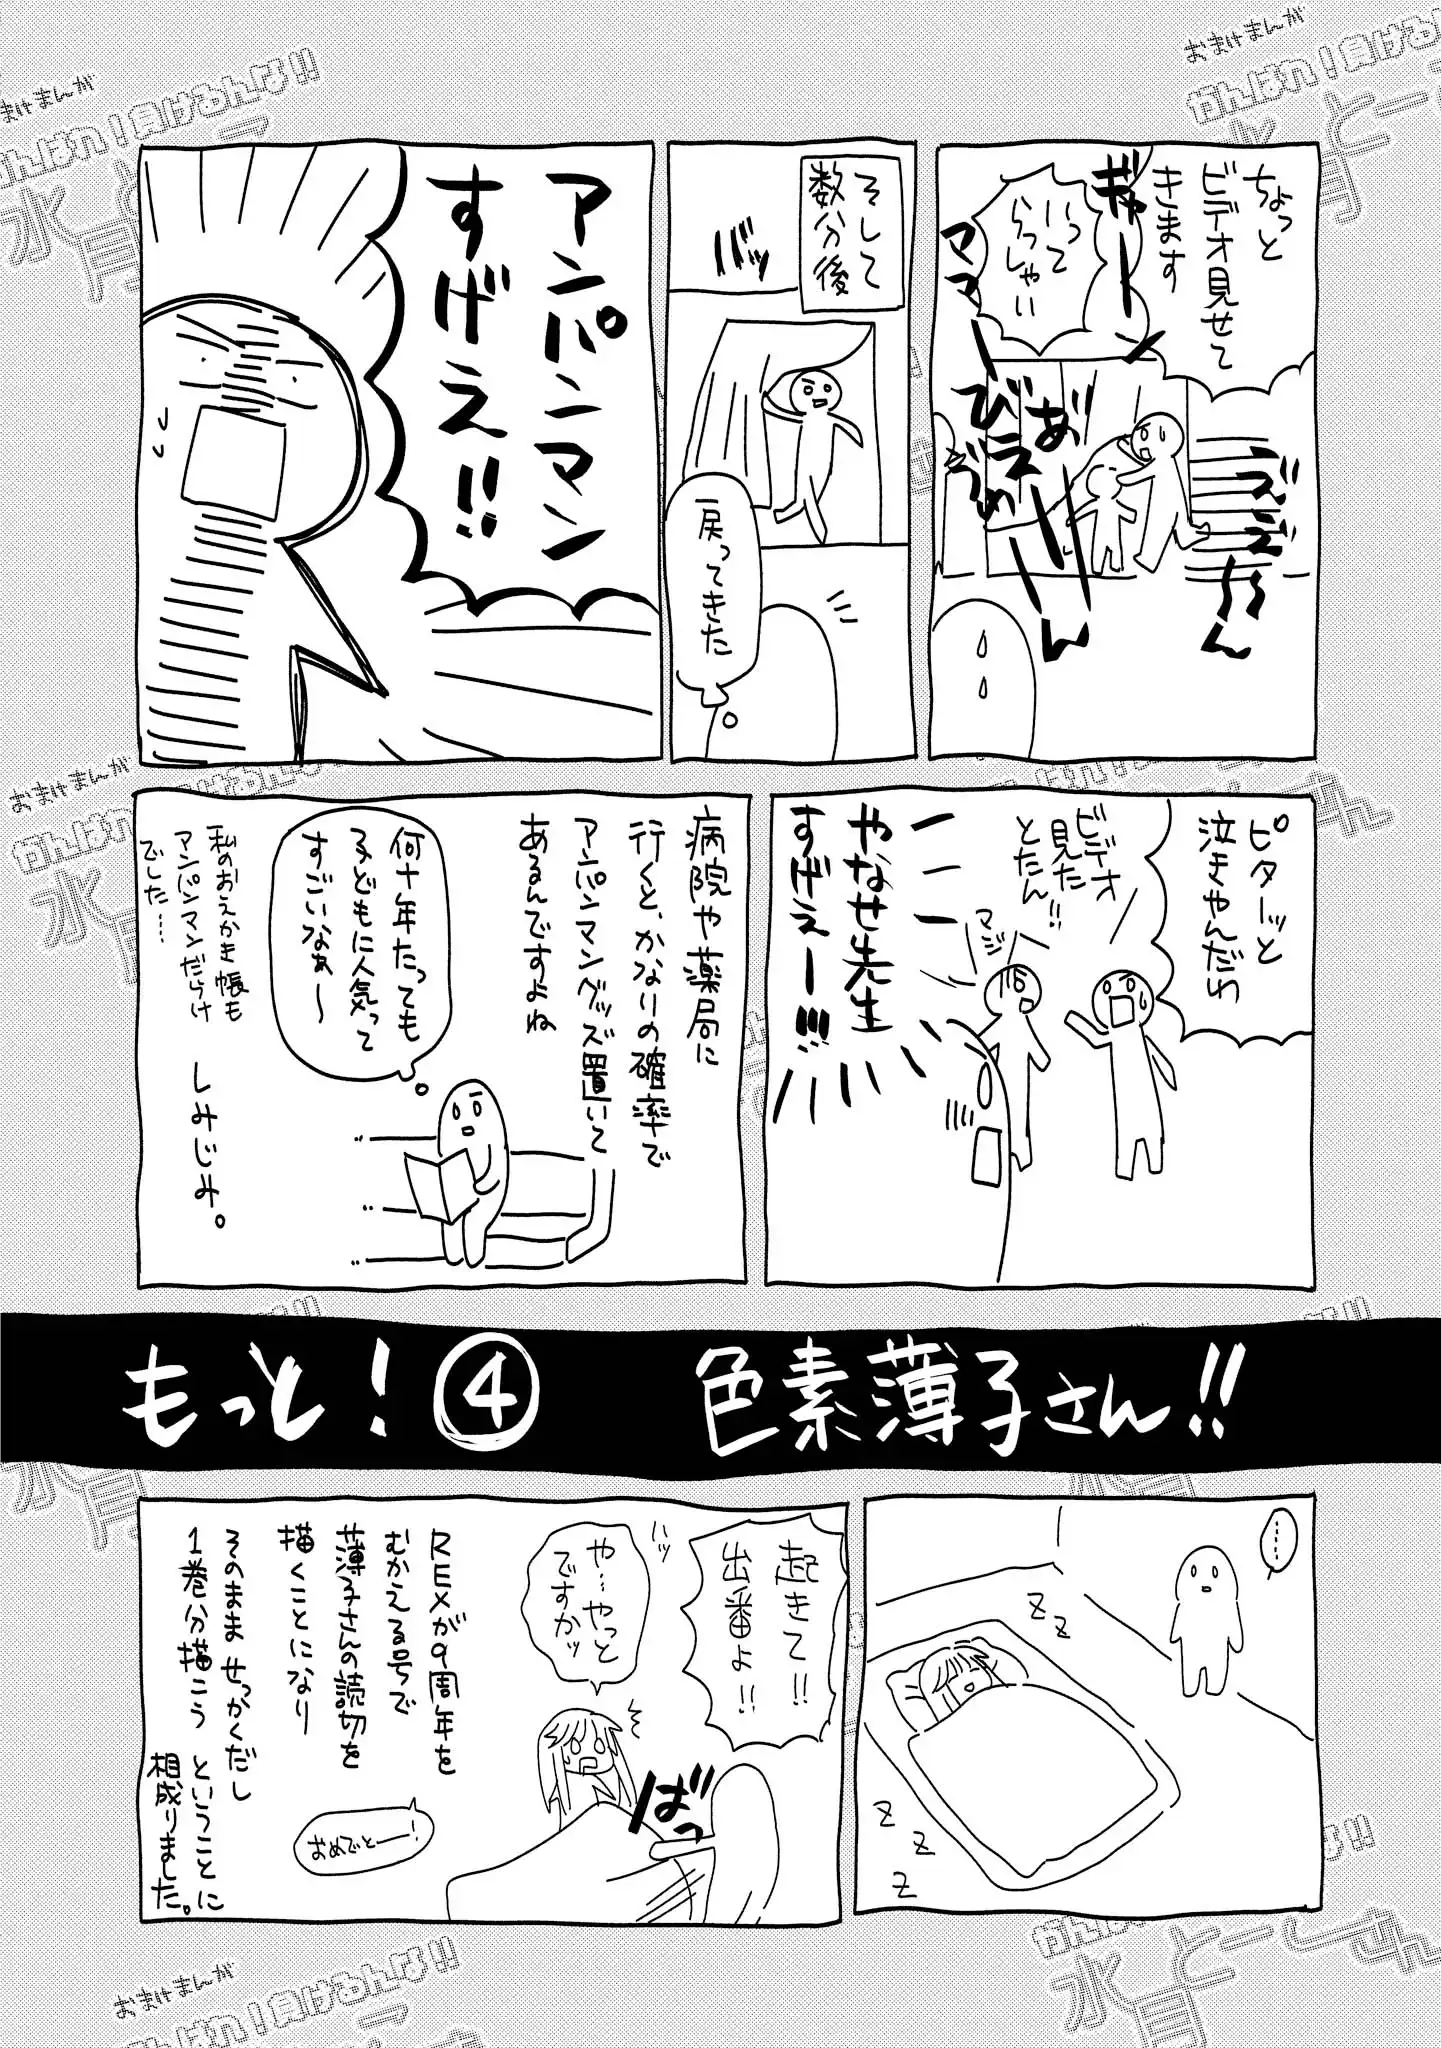 ちょっと
ビデオ見せて
きます
いって
らっしゃい
ぎゃーーン
ママー
あ"ーーん
びえーーん
うえ"え"〜〜ん
そして
数分後
バッ
戻ってきた
アンパンマン
すげえ!!
ピターッと
泣きやんだわ
ビデオ
見た
とたん!!
マジ
やなせ先生
すげえーー!!!
病院や薬局に
行くと、かなりの確率で
アンパンマングッズ置いて
あるんですよね
何十年たっても
子どもに人気って
すごいなぁ〜
私のおえかき帳も
アンパンマンだらけ
でした……
しみじみ。
もっと!④ 色素薄子さん!!
……
z z
z z z
起きて!!
出番よ!!
ハッ
や…やっと
ですかッ
ばっ
REXが9周年を
むかえる号で
薄子さんの読切を
描くことになり
おめでとーー!
そのまま せっかくだし
1巻分描こう ということに
相成りました。
おまけまんが
がんばれ!負けるんな!!